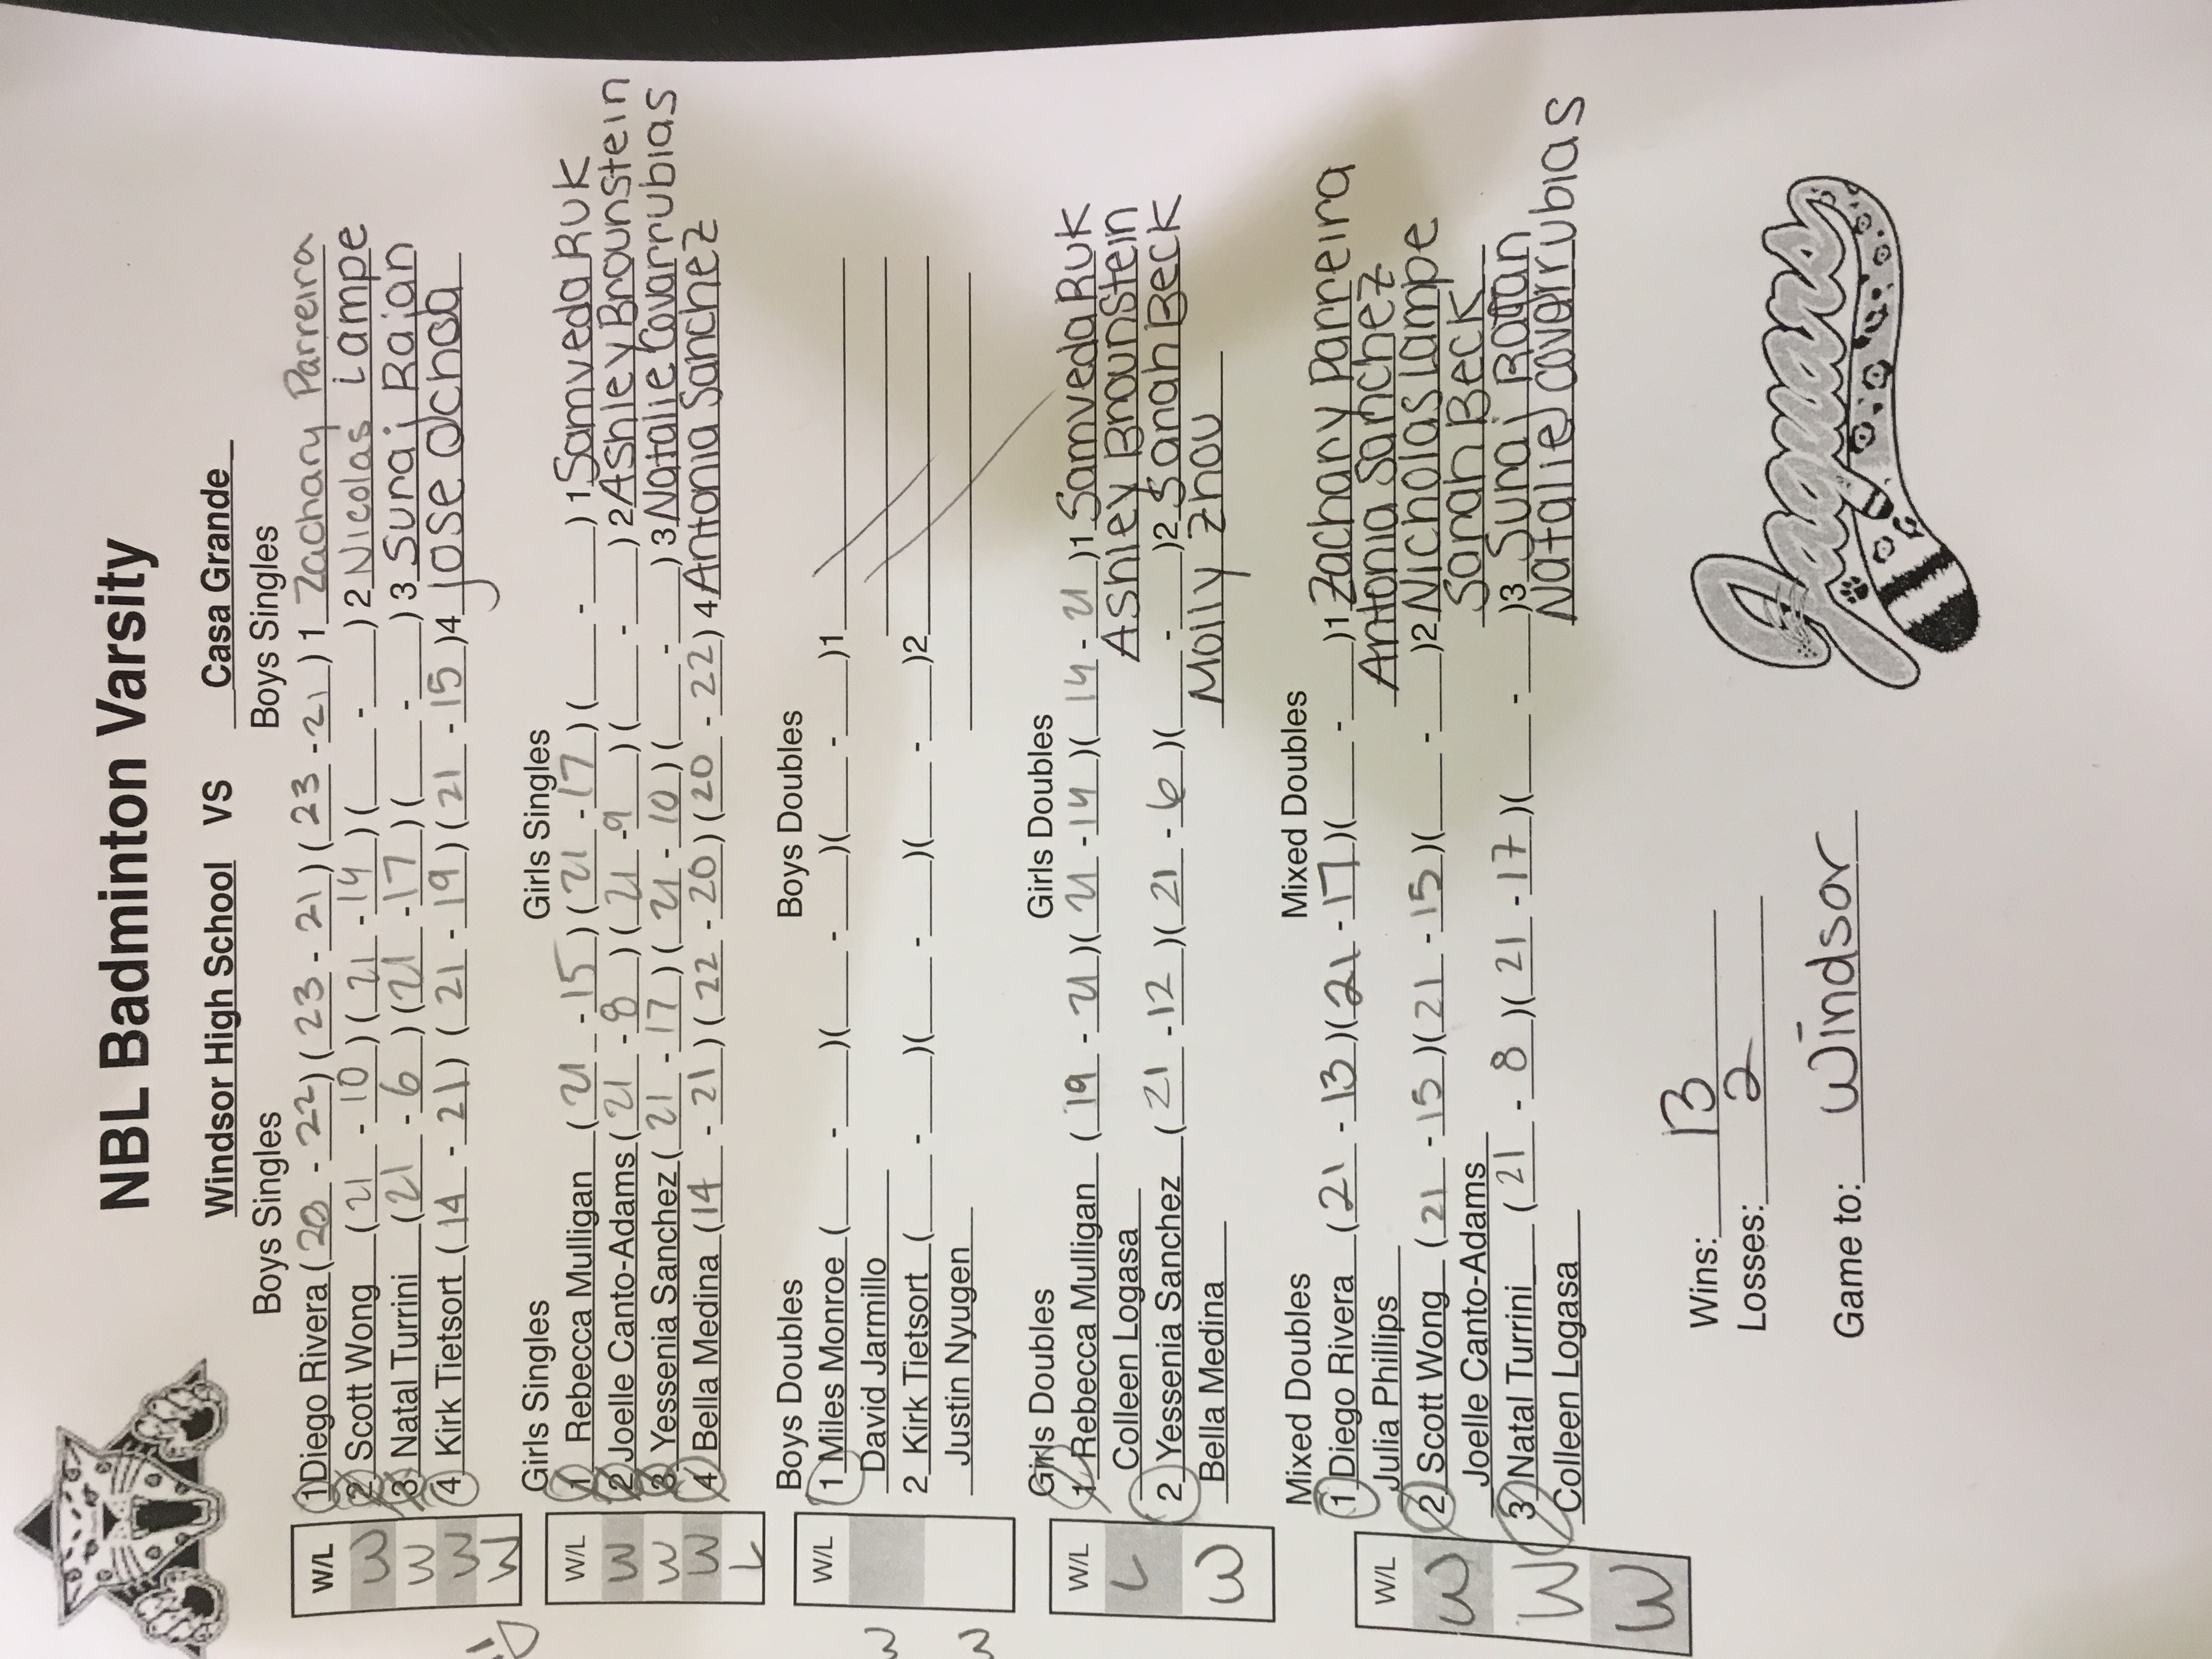 NBL Badminton Varsity
Windsor High School VS Casa Grande
Boys Singles Boys Singles
W/L
W 1 Diego Rivera (20 - 22) (23 - 21) (23 - 21) 1 Zachary Parreira
W 2 Scott Wong (21 - 10) (21 - 14) ( - ) 2 Nicolas Lampe
W 3 Natal Turrini (21 - 6) (21 - 17) ( - ) 3 Suraj Rajan
W 4 Kirk Tietsort (14 - 21) (21 - 19) (21 - 15) 4 Jose Ochoa
Girls Singles Girls Singles
W/L
W 1 Rebecca Mulligan (21 - 15) (21 - 17) ( - ) 1 Samveda Ruk
W 2 Joelle Canto-Adams (21 - 8) (21 - 9) ( - ) 2 Ashley Brounstein
W 3 Yessenia Sanchez (21 - 17) (21 - 10) ( - ) 3 Natalie Covarrubias
L 4 Bella Medina (14 - 21) (22 - 20) (20 - 22) 4 Antonia Sanchez
Boys Doubles Boys Doubles
W/L
W 1 Miles Monroe ( - )( - )( - )1
David Jarmillo
W 2 Kirk Tietsort ( - )( - )( - )2
Justin Nyugen
Girls Doubles Girls Doubles
W/L
L 1 Rebecca Mulligan (19 - 21)(21 - 14)(14 - 21)1 Samveda Ruk
Colleen Logasa Ashley Brounstein
W 2 Yessenia Sanchez (21 - 12)(21 - 6)( - )2 Sarah Beck
Bella Medina Molly Zhou
Mixed Doubles Mixed Doubles
W/L
W 1 Diego Rivera (21 - 13)(21 - 17)( - )1 Zachary Parreira
Julia Phillips Antonia Sanchez
W 2 Scott Wong (21 - 15)(21 - 15)( - )2 Nicholas Lampe
Joelle Canto-Adams Sarah Beck
W 3 Natal Turrini (21 - 8)(21 - 17)( - )3 Suraj Rajan
Colleen Logasa Natalie Coverrubias
Wins: 13
Losses: 2
Game to: Windsor
Jaguars